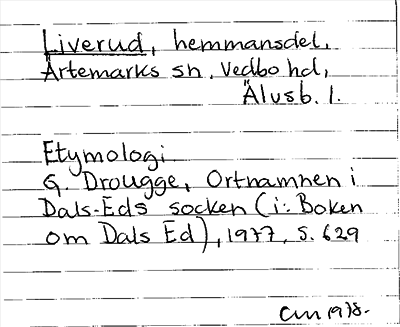 Liverud, hemmansdel,
Ärtemarks sn, Vedbo hd,
Älvsb. l.
Etymologi
G. Drougge, Ortnamnen i
Dals-Eds socken (i: Boken
om Dals Ed), 1977, s. 629
CM 1978.